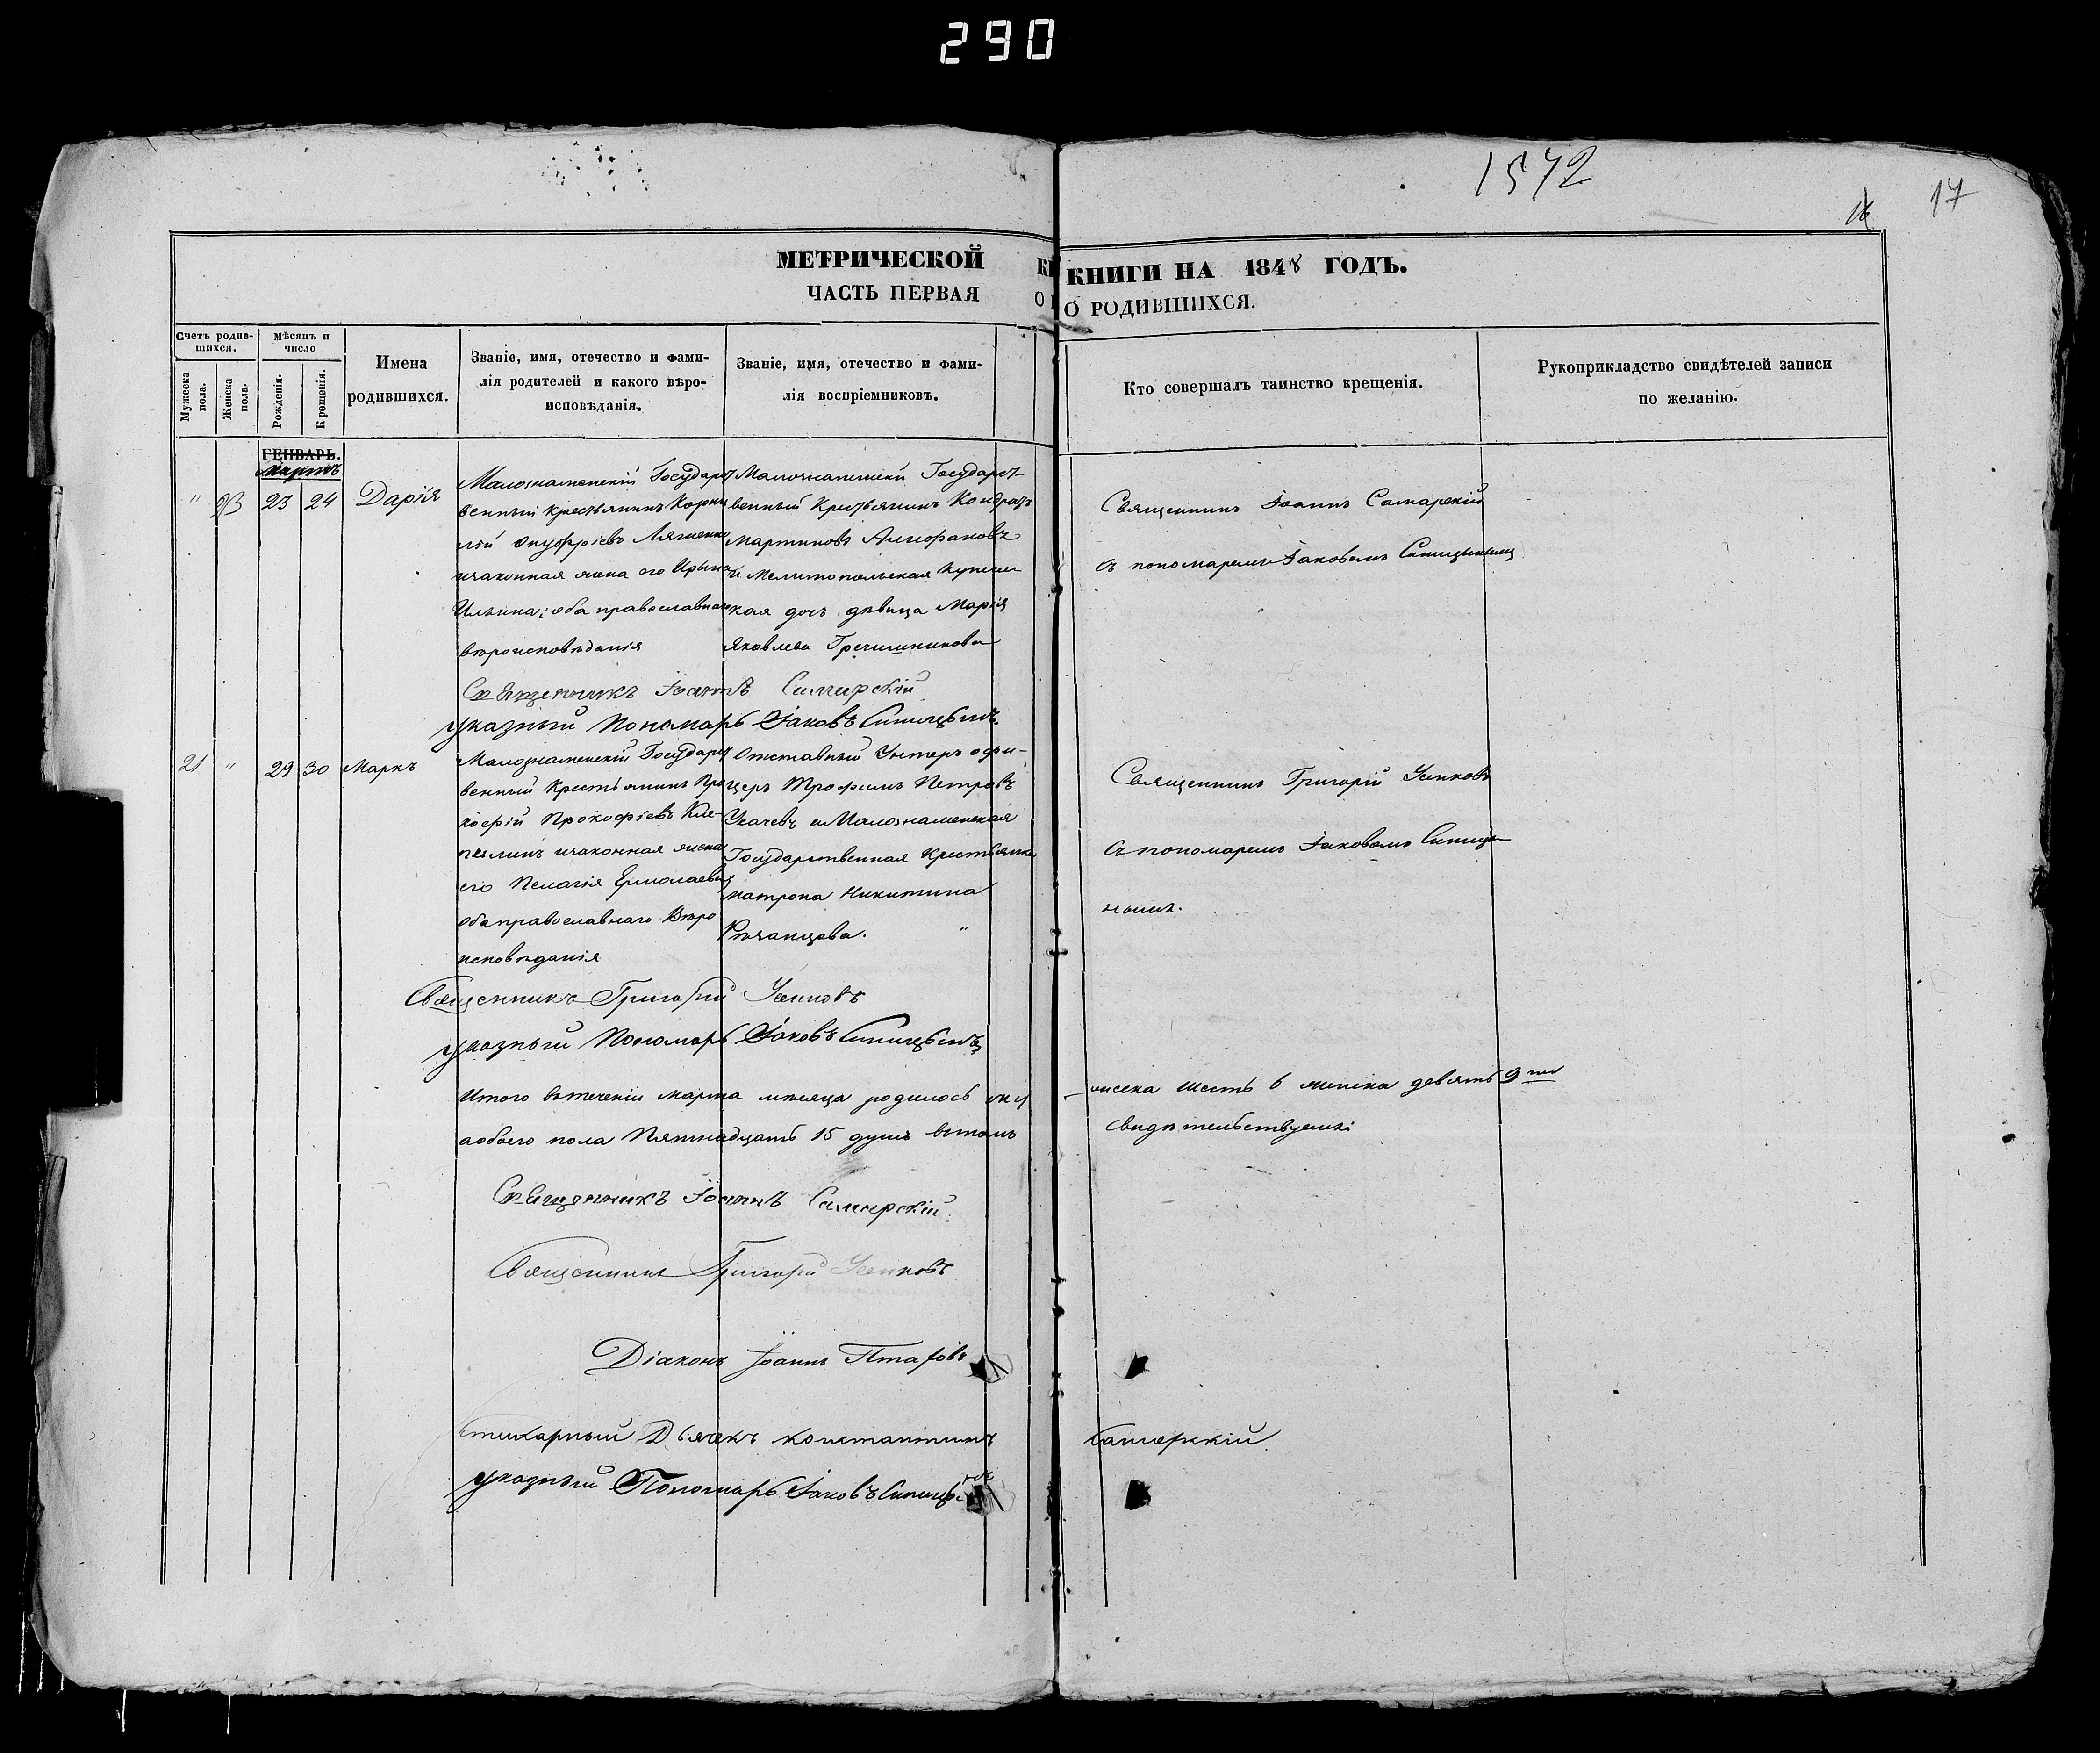 290
1572
16
17
МЕТРИЧЕСКОЙ КНИГИ НА 1848 ГОДЪ.
ЧАСТЬ ПЕРВАЯ О РОДИВШИХСЯ.
Счетъ родив-
шихся.
Мужеска пола.
Женска пола.
Мѣсяцъ и
число
Рожденія.
Крещенія.
Имена
родившихся.
Званіе, имя, отечество и фами-
лія родителей и какого вѣро-
исповѣданія.
Званіе, имя, отечество и фами-
лія воспріемниковъ.
Кто совершалъ таинство крещенія.
Рукоприкладство свидѣтелей записи
по желанію.
ГЕНВАРЬ.
Мартъ
" 23 23 24 Дарія
Малознаменскій Государст
венный Крестьянинъ Корни
лій Онуфріевъ
изаконная жена его Ирына
Ильина; оба православнаго
вѣроисповѣданія
Малознаменскій Государст-
венный Крестьянинъ Кондратъ
Мартиновъ
и Мелитопольская Купечес
кая дочь дѣвица Марія
Яковлева Гречишникова
Священникъ Іоаннъ Самарскій
съ пономаремъ Іаковомъ Синицынымъ
Священникъ Іоаннъ Самарскій
указный Пономарь Іаковъ Синицынъ
21 " 29 30 Маркъ
Малознаменскій Государст
венный Крестьянинъ Про
кофій Прокофіевъ
изаконная жена
его Пелагія Ермолаева
оба православнаго Вѣро
исповѣданія
Отставный Унтеръ офи-
церъ Трофимъ Петровъ
Усачевъ и Малознаменская
Государственная Крестьянка
Матрона Никитина
Рязанцова. "
Священникъ Григорій Усенковъ
съ пономаремъ Іаковомъ Синицы
нымъ.
Священникъ Григорій Усенковъ
указный Пономарь Іаковъ Синицынъ
Итого втеченіи марта мѣсяца родилось муж
-песка шесть 6 женска девять 9
аобоего пола Пятнадцать 15 душъ вътомъ
свидѣтельствуемъ:
Священникъ Іоаннъ Самарскій
Священникъ Григорій Усенковъ
Діаконъ Іоаннъ
Стихарный Дьячекъ Константинъ
указный Пономарь Іаковъ Синицынъ